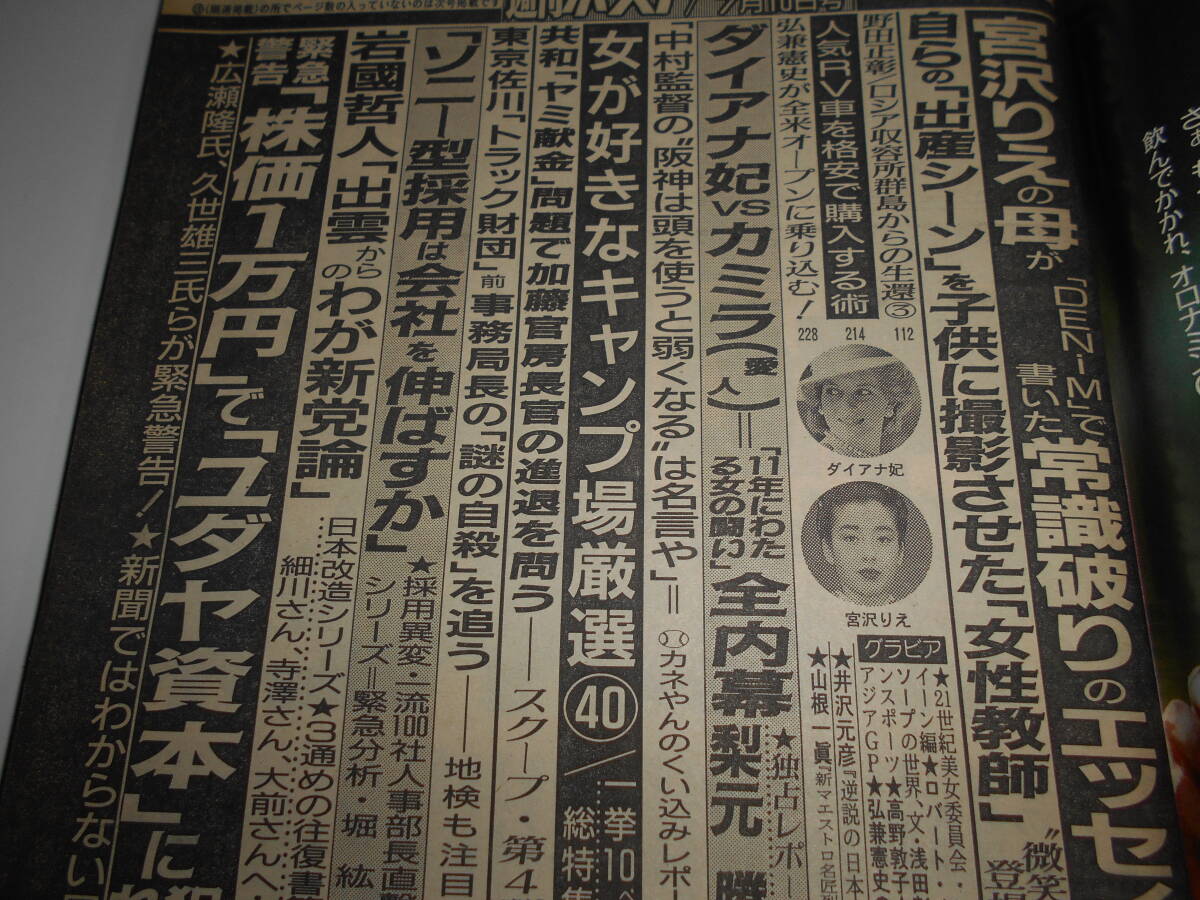 飲んでかかれ、オロナミ
宮沢りえの母が
「DENiM」で
書いた
常識破りのエッセ
自らの「出産シーン」を子供に撮影させた「女性教師」
"微笑
登場
野田正彰/ロシア収容所群島からの生還③
112
人気RV車を格安で購入する術
214
弘兼憲史が全米オープンに乗り込む!
228
ダイアナ妃
宮沢りえ
グラビア
★21世紀美女委員会・
イーン編★ロバート・
ソープの世界、文・浅田彰
ンスポーツ★高野敦子
アジアGP★弘兼憲史
★井沢元彦『逆説の日本
★山根一眞『新マエストロ名匠列
ダイアナ妃vsカミラ(愛人)=
「11年にわた
る女の闘い」
全内幕
梨元 勝
★独占レポー
「中村監督の"阪神は頭を使うと弱くなる"は名言や」=
カネやんのくい込みレポー
女が好きなキャンプ場厳選㊵/
一挙10ペ
総特集
共和「ヤミ献金」問題で加藤官房長官の進退を問う——スクープ・第4
東京佐川「トラック財団」前事務局長の「謎の自殺」を追う——地検も注目
「ソニー型採用は会社を伸ばすか」
★採用異変・一流100社人事部長直撃
シリーズ=緊急分析・堀 紘
岩國哲人「出雲からのわが新党論」
日本改造シリーズ★3通めの往復書簡
細川さん、寺澤さん、大前さんへ
緊急
警告
「株価1万円」で「ユダヤ資本」に
★広瀬隆氏、久世雄三氏らが緊急警告!★新聞ではわからない